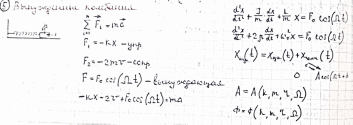 ⑤ Вынужденные колебания
Σ F⃗ᵢ = ma⃗
F₁ = -kx - упр
F₂ = -2mv - сопр
F = F₀cos(Ωt) - вынуждающая
-kx - 2v + F₀cos(Ωt) = ma
d²x/dt² + dx/dt + k/m x = F₀ cos(Ωt)
d²x/dt² + 2 dx/dt + ω²x = F₀ cos(Ωt)
(t) = (t) + (t)
0 A cos(Ωt+
A = A(k, m, η, Ω)
Φ = Φ(k, m, η, Ω)